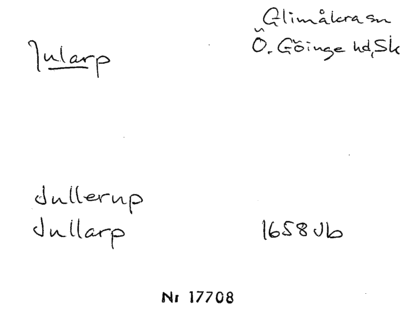 Glimåkra sn
Jularp Ö. Göinge hd, Sk
Jullerup
Jullarp 1658 Jb
Nr 17708